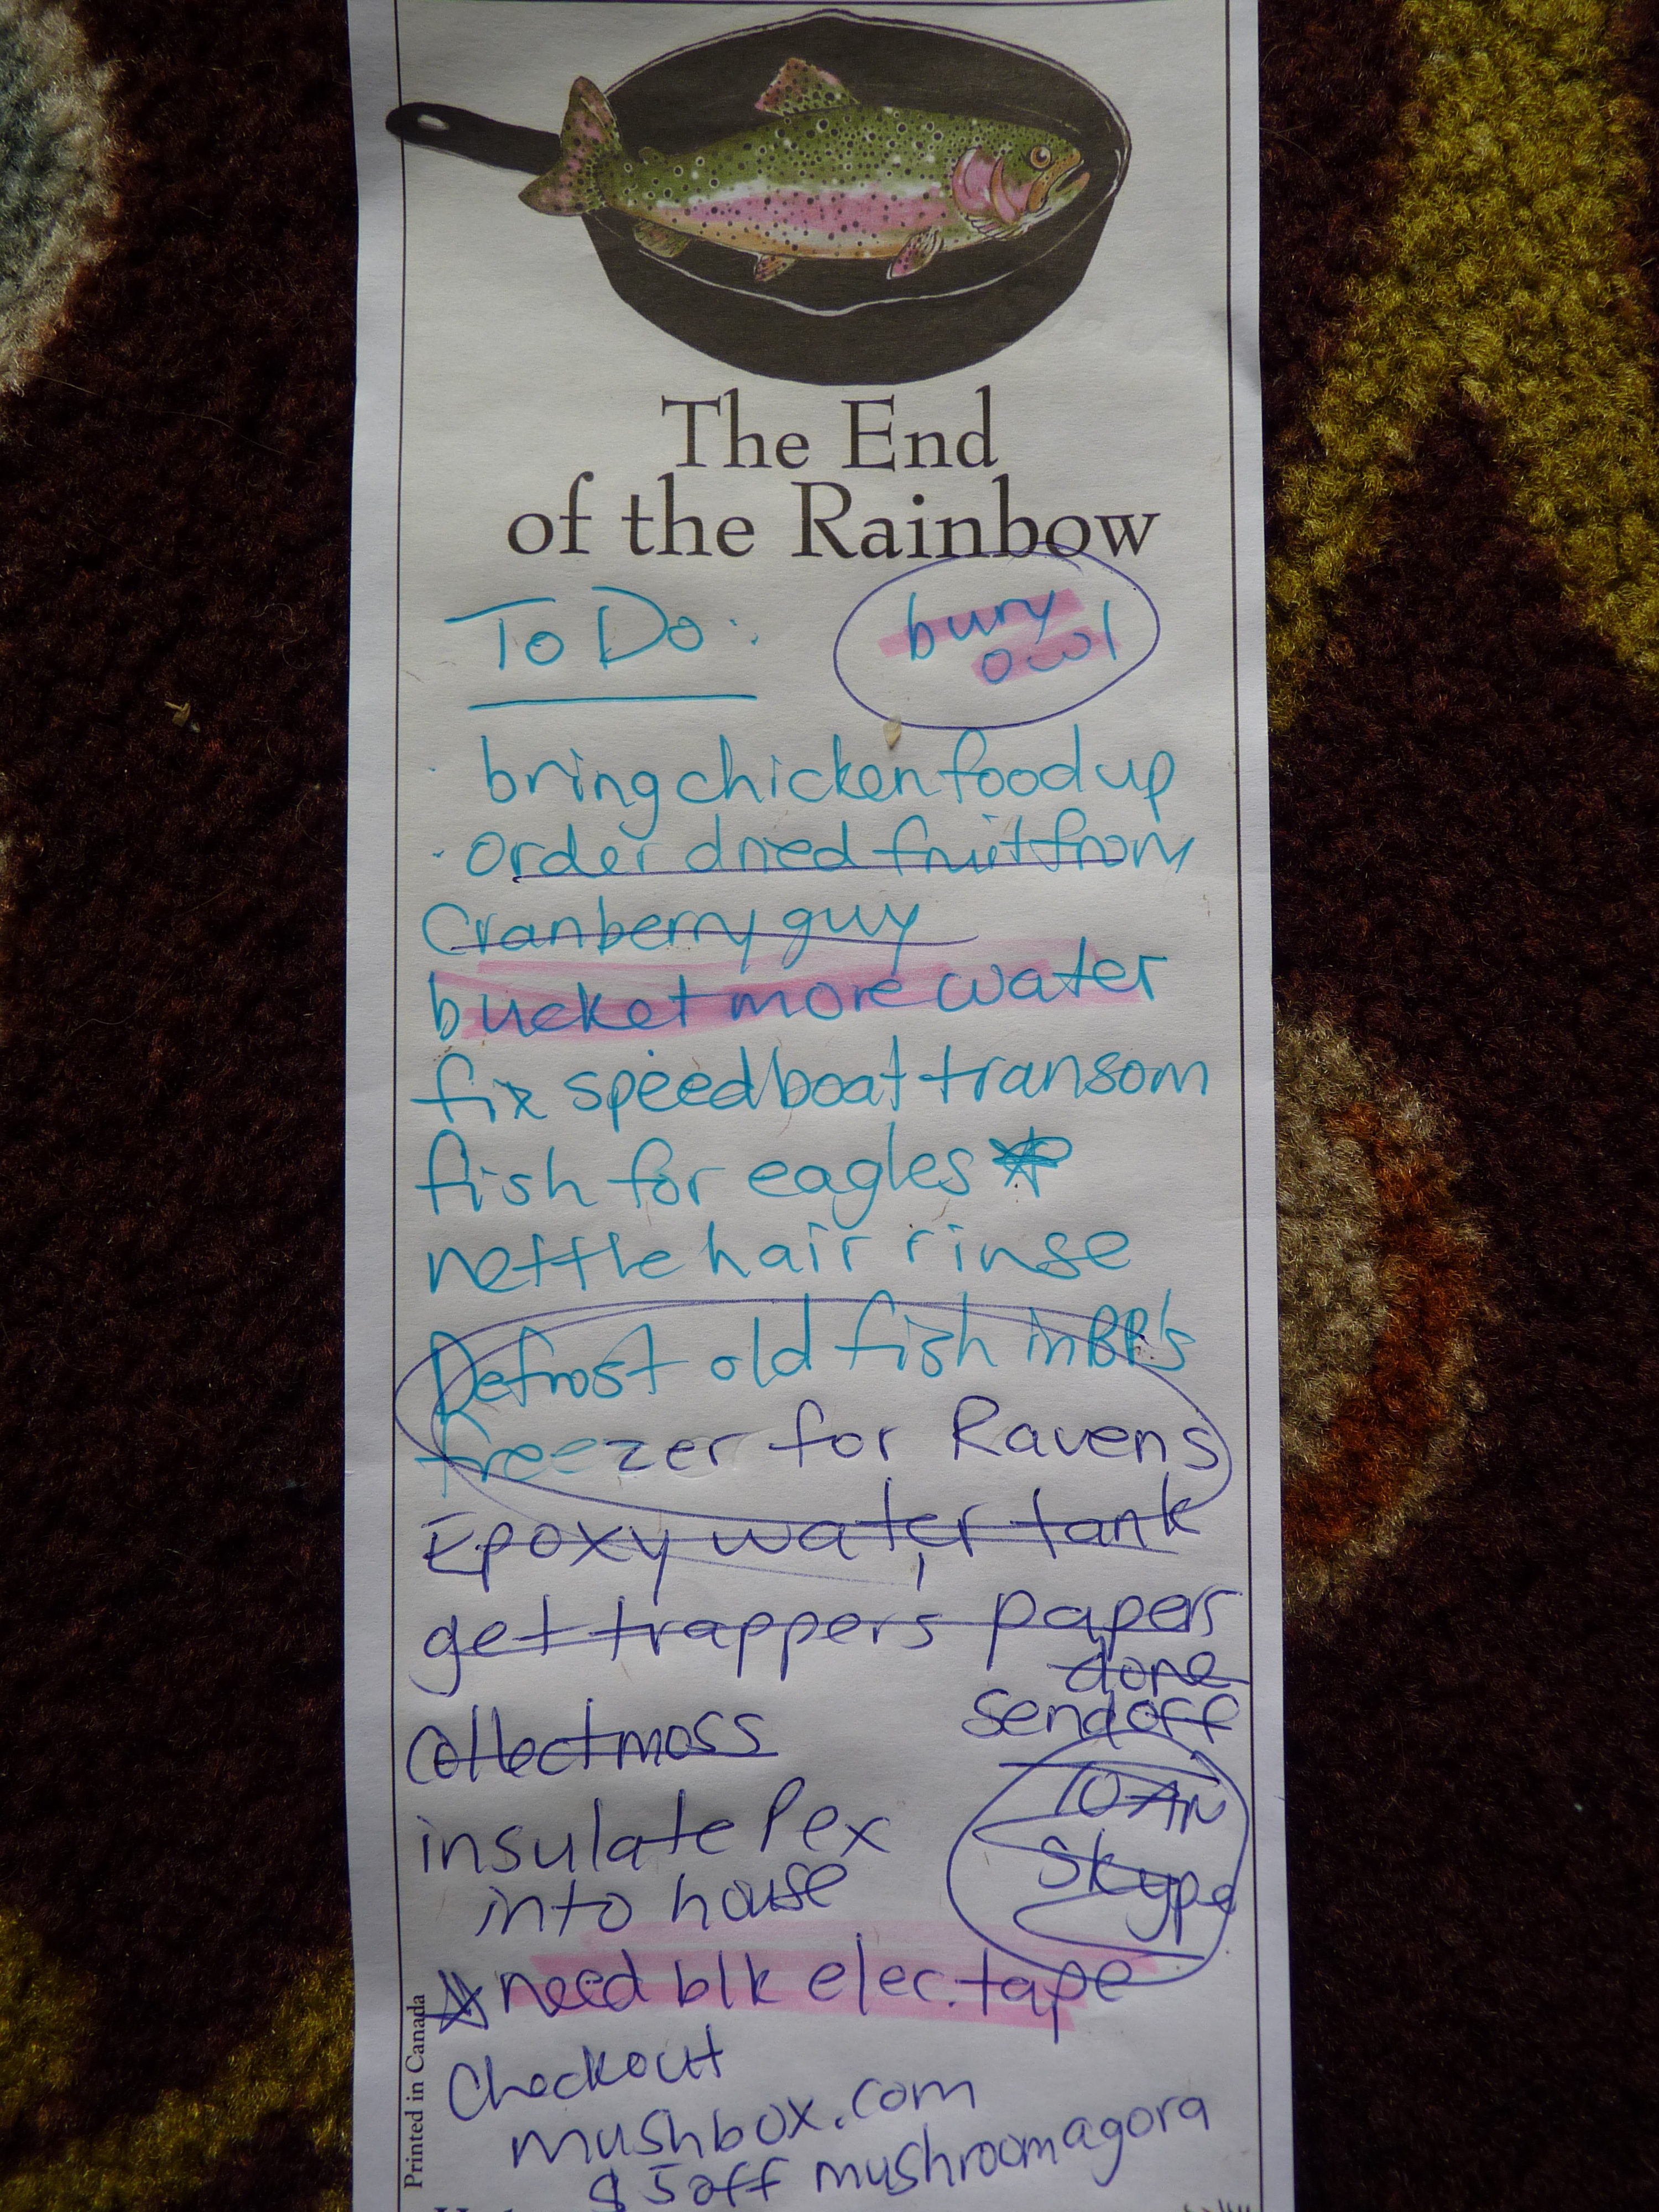 The End
of the Rainbow
To Do:
bury
owl
· bring chicken food up
· Order dried fruit from
Cranberry guy
bucket more water
fix speedboat transom
fish for eagles
nettle hair rinse
Defrost old fish in BR's
freezer for Ravens
Epoxy water tank
get trappers papers
done
send off
collect moss
10 AM
Skype
insulate Pex
into house
need blk elec. tape
Checkout
mushbox.com
$5 off mushroomagora
Printed in Canada